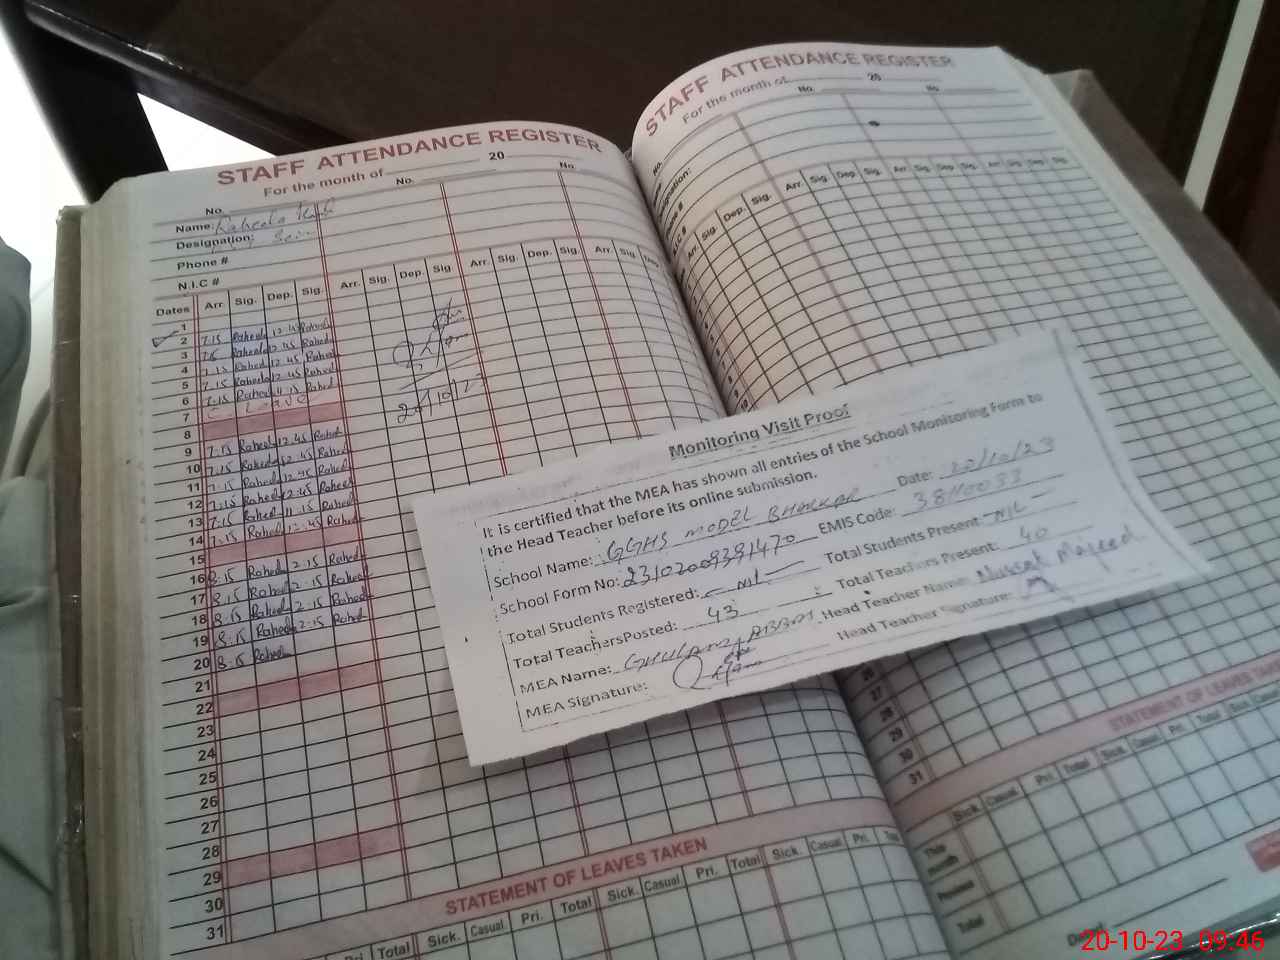 STAFF ATTENDANCE REGISTER
For the month of 20
No. No. No.
Name: Raheela
Designation:
Phone #
N.I.C #
Dates Arr. Sig. Dep. Sig. Arr. Sig. Dep. Sig. Arr. Sig. Dep. Sig. Arr. Sig. Dep.
1
2 7.15 Raheela 12.45 Raheela
3 Raheela 12.45 Raheela
4 7.15 Raheela 12.45 Raheela
5 7.15 Raheela 12.45 Raheela
6 7.15 Raheela 11.15 Raheel
7
8
9 7.15 Raheela 12.45 Raheel
10 7.15 Raheela 12.45 Raheel
11 7.15 Raheela 12.45 Raheel
12 7.15 Raheela 12.45 Raheel
13 7.15 Raheela 11.15 Raheel
14 7.15 Raheela 12.45 Raheel
15
16 8.15 Raheela 2.15 Raheel
17 8.15 Raheela 2.15 Raheel
18 8.15 Raheela 2.15 Raheel
19 8.15 Raheela 2.15 Raheel
20 8.15 Raheel
21
22
23
24
25
26
27
28
29
30
31
STATEMENT OF LEAVES TAKEN
Pri. Total Sick. Casual Pri. Total Sick. Casual Pri. Total Sick. Casual Pri.
STAFF ATTENDANCE REGISTER
For the month of 20
No. No. No.
Arr. Sig. Dep. Sig. Arr. Sig. Dep. Sig. Arr. Sig. Dep. Sig. Arr. Sig. Dep. Sig.
Monitoring Visit Proof
It is certified that the MEA has shown all entries of the School Monitoring Form to
the Head Teacher before its online submission.
School Name: GGHS MODEL BHAKKAR Date: 20/10/23
School Form No: 23102009391470 EMIS Code: 38110033
Total Students Registered: NIL Total Students Present: NIL
Total TeachersPosted: 43 Total Teachers Present: 40
MEA Name: GHULAM ABBAS Head Teacher Name: Nusrat Majeed
MEA Signature: Head Teacher Signature:
26
27
28
29
30
31
STATEMENT OF LEAVES TAKEN
Sick. Casual Pri. Total Sick. Casual Pri. Total Sick. Casual
This month
Previous
Total
20-10-23 09:46